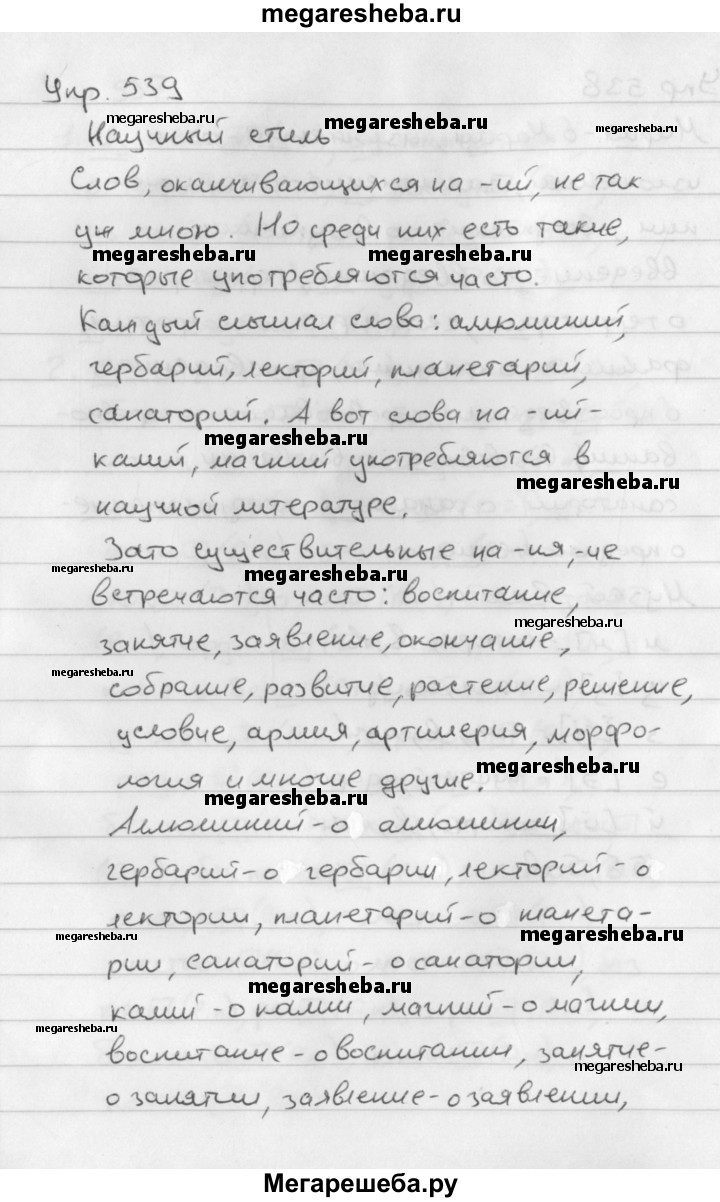 megaresheba.ru
Упр. 539
megaresheba.ru megaresheba.ru megaresheba.ru
Научный стиль
Слов, оканчивающихся на -ий, не так
уж много. Но среди них есть такие,
megaresheba.ru megaresheba.ru
которые употребляются часто.
Каждый слышал слова: алюминий,
гербарий, лекторий, планетарий,
санаторий. А вот слова на -ий-
megaresheba.ru
калий, магний употребляются в
megaresheba.ru
научной литературе.
Зато существительные на -ия, -ие
megaresheba.ru megaresheba.ru
встречаются часто: воспитание,
megaresheba.ru
занятие, заявление, окончание,
megaresheba.ru
собрание, развитие, растение, решение,
условие, армия, артиллерия, морфо-
megaresheba.ru
логия и многие другие.
megaresheba.ru
Аллюминий - о алюминии,
гербарий - о гербарии, лекторий - о
лектории, планетарий - о планета-
megaresheba.ru megaresheba.ru
рии, санаторий - о санатории,
megaresheba.ru
калий - о калии, магний - о магнии,
megaresheba.ru
воспитание - о воспитании, занятие -
megaresheba.ru
о занятии, заявление - о заявлении,
Мегарешеба.ру